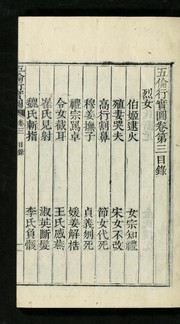 五倫行實圖卷第三目錄
烈女
伯姬逮火 女宗知禮
殖妻哭夫 宋女不改
高行割鼻 節女代死
穆姜撫子 貞義刎死
禮宗罵卓 媛姜解梏
令女截耳 王氏感燕
崔氏見射 淑英斷髮
魏氏斬指 李氏負骸
五倫行實圖 卷三 目錄